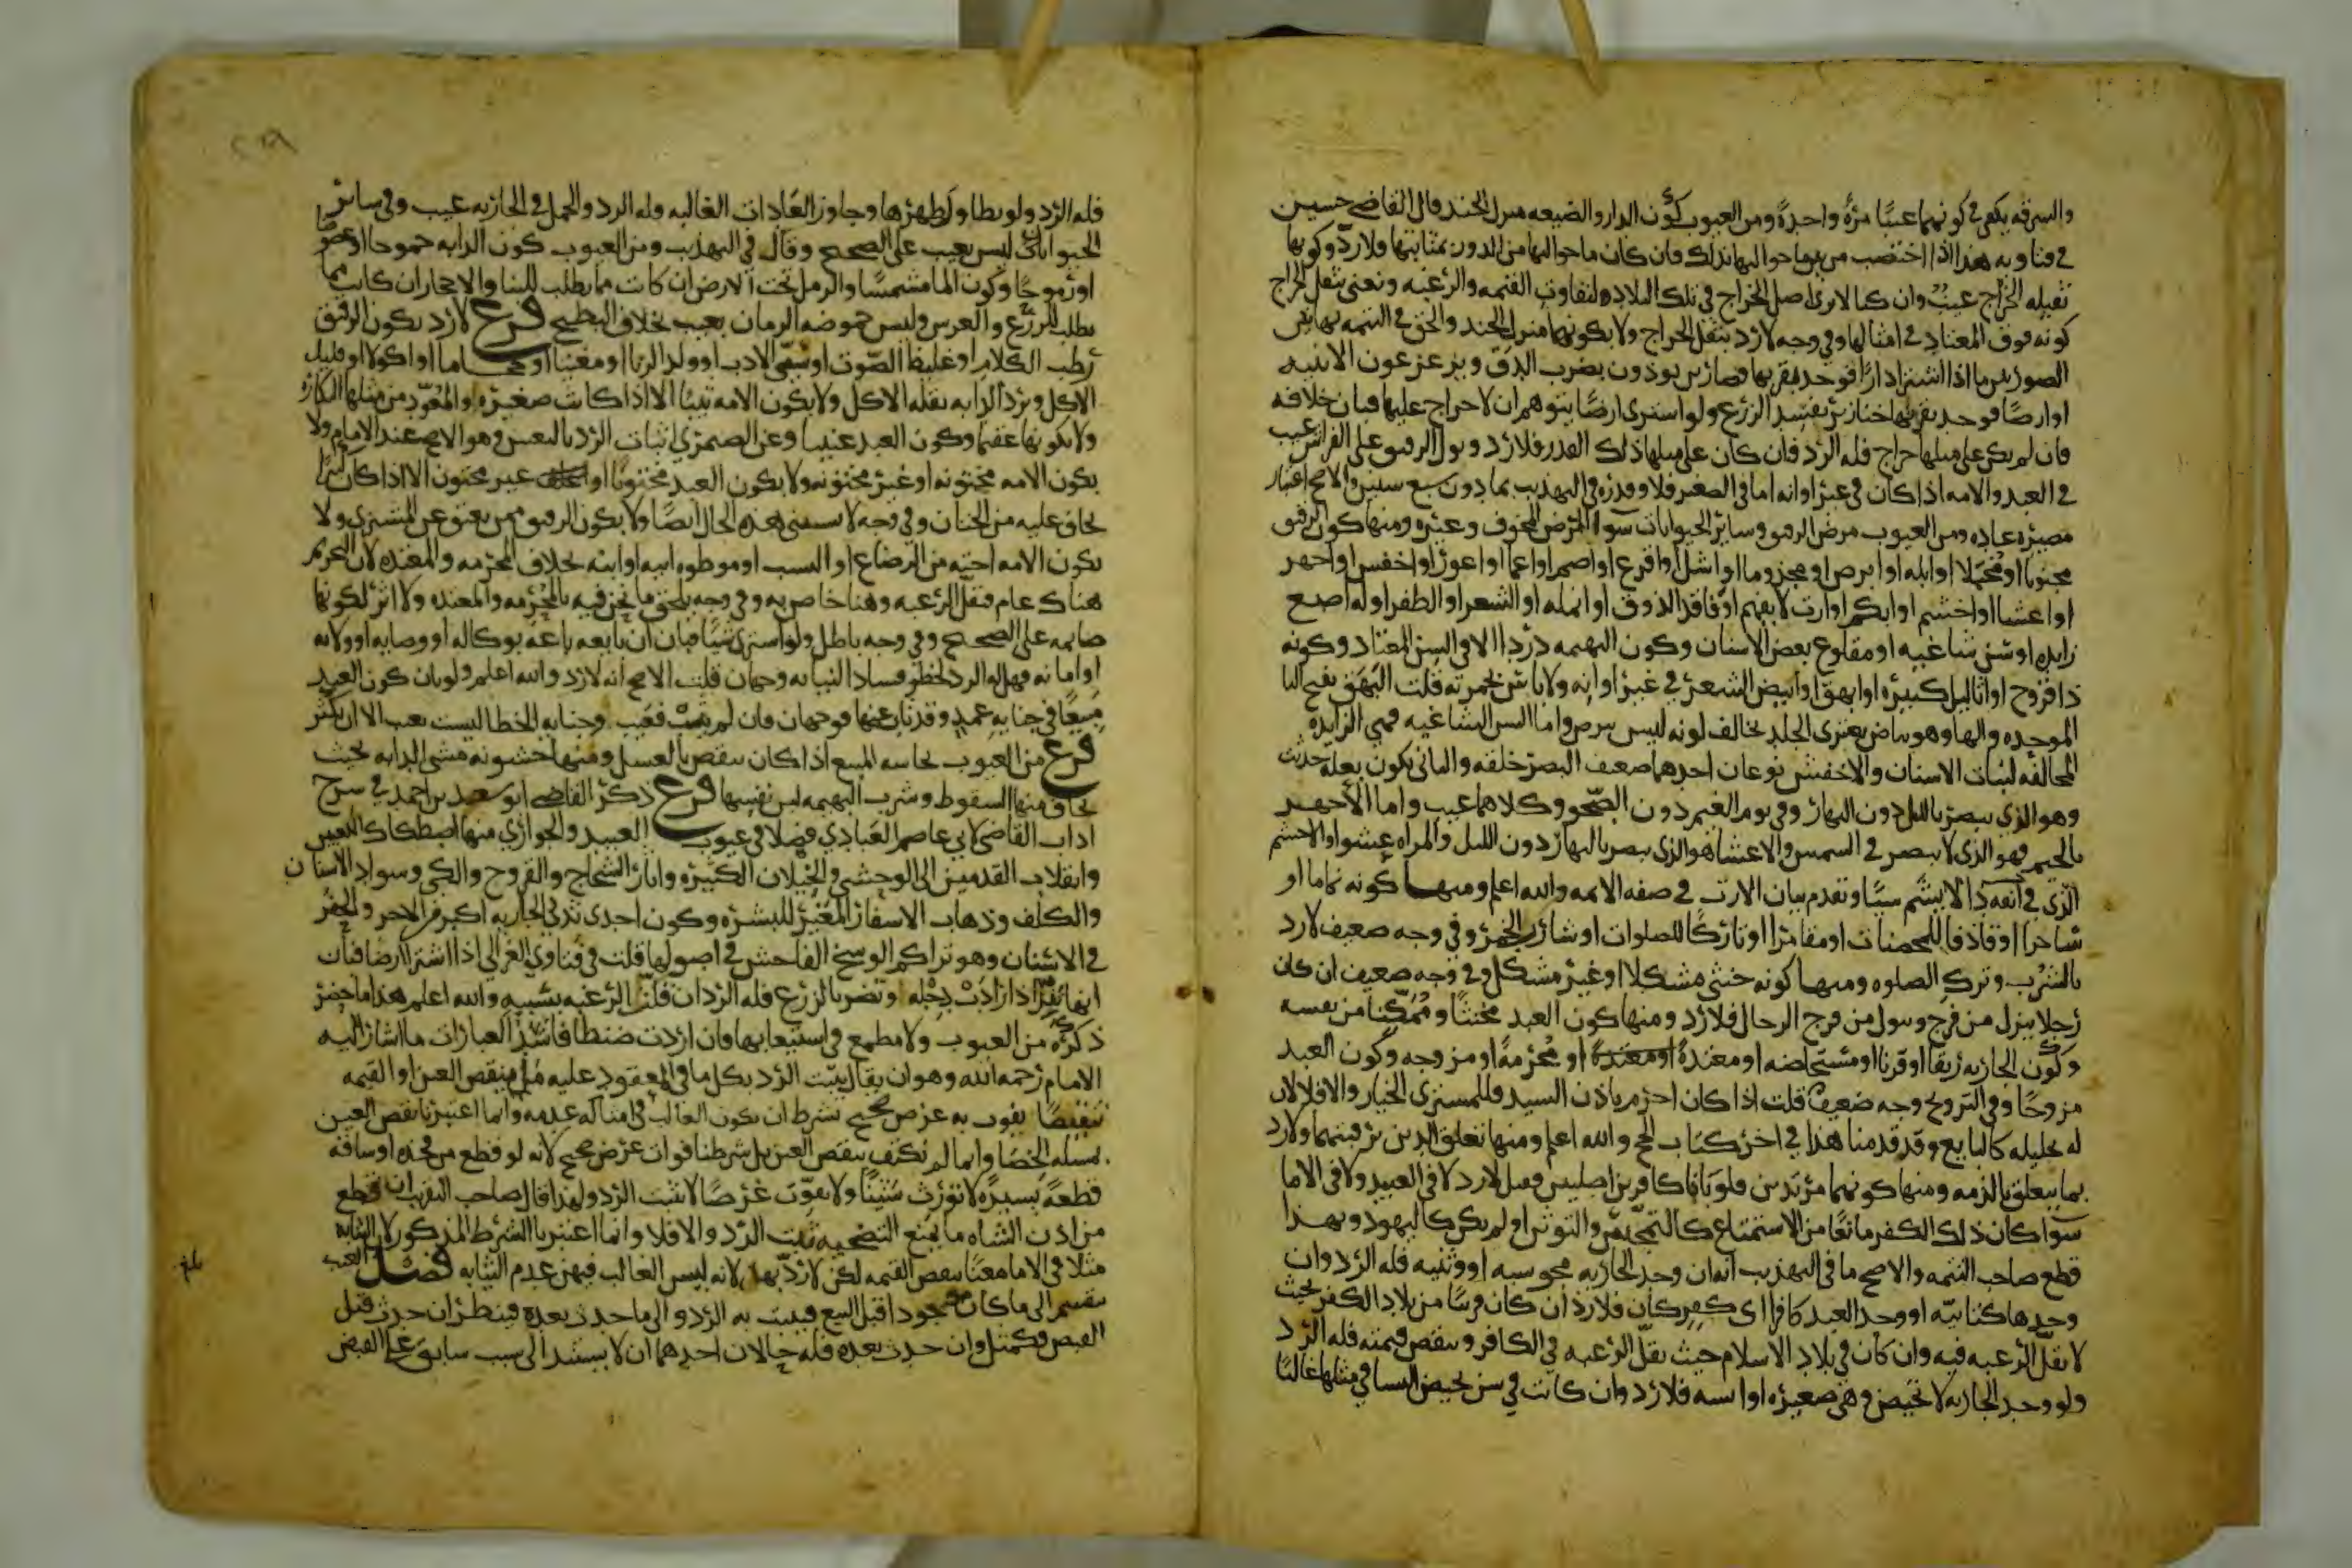 والسرقه يكفي في كونهما عيبًا مرةً واحدةً ومن العيوب كون الدار والضيعه منزل الجند قال القاضي حسين
في فتاويه هذا اذا اختصت من بين ما حواليها بذلك فان كان ما حواليها من الدور بمثابتها فلا ردّ وكونها
ثقيله الخراج عيبٌ وان كنا لا نرى اصل الخراج في تلك البلاد ولتفاوت القيمه والرغبه ونعني بثقل الخراج
كونه فوق المعتاد في امثالها وفي وجه لا رد بثقل الخراج ولا بكونهما منزل الجند والحق في التتمه بهاتين
الصورتين ما اذا اشترا دارًا فوجد بقربها قصارين يوذون بضرب الدق ويزعزعون الابنيه
او ارضًا فوجد بقربها خنازير تفسد الزرع ولو اشترى ارضًا يتوهم ان لا خراج عليها فبان خلافه
فان لم يكن على مثلها خراج فله الرد فان كان على مثلها ذلك القدر فلا رد وبول الرقيق على الفراش عيب
في العبد والامه اذا كان في غير اوانه اما في الصغر فلا وقدره في التهذيب بما دون سبع سنين والاصح اعتبار
مصيره عاده ومن العيوب مرض الرقيق وساير الحيوانات سواء المرض المخوف وغيره ومنها كون الرقيق
مجنونا او مخبلا او ابله او ابرص او مجزوما او اشل او اقرع او اصم او اعما او اعور او اخفش او اجهر
او اعشا او اخشم او ابكم او ارت لا يفهم او فاقد الذوق او انمله او الشعر او الظفر او له اصبع
زايده او سن شاغيه او مقلوع بعض الاسنان وكون البهيمه درداا الا في السن المعتاد وكونه
ذا قروح او ثاليل كبيره او ابهق او ابيض الشعر في غير اوانه ولا باس بحمرته قلت البهق بفتح البا
الموحده والها وهو بياض يعتري الجلد يخالف لونه ليس ببرص واما السن الشاغيه فهي الزايده
المخالفه لنبات الاسنان والاخفش نوعان احدهما ضعيف البصر خلقه والثاني يكون بعله حدثت
وهو الذي يبصر بالليل دون النهار وفي يوم الغيم دون الصحو وكلاهما عيب واما الاجهر
بالجيم فهو الذي لا يبصر في الشمس والاعشا هو الذي يبصر بالنهار دون الليل والمراه عشوا والاخشم
الذي في انفه دا لا يشم شيًا وتقدم بيان الارت في صفه الايمه والله اعلم ومنها كونه نماما او
ساحرا او قاذفا للمحصنات او مقامرا او تاركًا للصلوات او شارب الخمر وفي وجه ضعيف لا رد
بالشرب وترك الصلوه ومنها كونه خنثى مشكلا او غير مشكل وفي وجه ضعيف ان كان
رجلا ينزل من فرج وبول من فرج الرجال فلا رد ومنها كون العبد مخنثًا وممكنا من نفسه
وكون الجاريه رتقا او قرنا او مستحاضه او معتدةً او معتدةً او محرمةً او مزوجه وكون العبد
مزوجًا وفي التزويج وجه ضعيف قلت اذا كان احرم باذن السيد فللمشتري الخيار والا فلا لان
له تحليله كالبايع وقد قدمنا هذا في اخر كتاب الحج والله اعلم ومنها تعلق الدين برقبتهما ولا رد
بما يتعلق بالذمه ومنها كونهما مرتدين فلو بانا كافرين اصليين فقيل لا رد لا في العبيد ولا في الاما
سوا كان ذلك الكفر مانعًا من الاستمتاع كالتمجس والتوثن او لم يكن كاليهود وبهذا
قطع صاحب التتمه والاصح ما في التهذيب انه ان وجد الجاريه مجوسيه او وثنيه فله الرد وان
وجدها كتابيه او وجد العبد كافرا اي كفر كان فلا رد ان كان قريبًا من بلاد الكفر بحيث
لا تقل الرغبه فيه وان كان في بلاد الاسلام حيث تقل الرغبه في الكافر وتنقص قيمته فله الرد
ولو وجد الجاريه لا تحيض وهي صغيره او ايسه فلا رد وان كانت في سن تحيض النسا في مثلها غالبًا
فله الرد ولو تطاول طهرها وجاوز العادات الغالبه فله الرد والحمل في الجاريه عيب وفي ساير
الحيوانات ليس بعيب على الصحيح وقال في التهذيب ومن العيوب كون الدابه جموحا او عضوضًا
او رموحًا وكون الما مشمسًا والرمل تحت الارض ان كانت مما تطلب للبنا والاحجار ان كانت مما
تطلب للزرع والغرس وليس حموضه الرمان بعيب بخلاف البطيخ فرع لا رد بكون الرقيق
رطب الكلام او غليظ الصوت او سي الادب او ولد الزنا او مغنيا او حجاما او اكولا او قليل
الاكل وترد الدابه بقله الاكل ولا بكون الامه ثيبًا الا اذا كانت صغيره والمعهود من مثلها البكاره
ولا بكونها عقيما وكون العبد عنينا وعن الصيمري اثبات الرد بالتعنين وهو الاصح عند الامام ولا
بكون الامه مختونه او غير مختونه ولا بكون العبد مختونًا او غير مختون الا اذا كان كبيرًا
يخاف عليه من الختان وفي وجه لا تستثنى هذه الحال ايضًا ولا بكون الرقيق ممن يعتق عن المشتري ولا
بكون الامه اخته من الرضاع او النسب او موطوه ابيه او ابنه بخلاف المحرمه والمعتده لان التحريم
هناك عام فتقل الرغبه وهنا خاص به وفي وجه يلحق ما نحن فيه بالمحرمه والمعتده ولا اثر لكونها
صايمه على الصحيح وفي وجه باطل ولو اشترى شيًا فبان ان بايعه باعه بوكاله او وصايه او ولايه
او امانه فهل له الرد لخطر فساد النيابه وجهان قلت الاصح انه لا رد والله اعلم ولو بان كون العبد
مبيعًا في جنايه عمدٍ وقد تاب عنها فوجهان فان لم يتب فعيب وجنايه الخطا ليست بعيب الا ان يكثر
فرع من العيوب نجاسه المبيع اذا كان ينقص بالغسل ومنها خشونه مشي الدابه بحيث
يخاف منها السقوط وشرب البهيمه لبن نفسها فرع ذكر القاضي ابو سعد بن احمد في شرح
اداب القاضي لابي عاصم العبادي فصلا في عيوب العبيد والجواري منها اصطكاك الكعبين
وانقلاب القدمين الى الوحشي والخيلان الكثيره واثار الشجاج والقروح والكي وسواد الاسنان
والكلف وذهاب الاشفار المغير للبشره وكون احدى ثديي الجاريه اكبر من الاخر والحفر
في الاسنان وهو تراكم الوسخ الفاحش في اصولها قلت في فتاوي الغزالي اذا اشترا ارضا فبان
انها تنز اذا زادت دجله وتضر بالزرع فله الرد ان قلت الرغبه بسببه والله اعلم هذا ما حضر
ذكره من العيوب ولا مطمع في استيعابها فان اردت ضبطا فاشد العبارات ما اشار اليه
الامام رحمه الله وهو ان يقال يثبت الرد بكل ما في المعقود عليه من منقص العين او القيمه
تنقيصًا يفوت به غرض صحيح بشرط ان يكون الغالب في امثاله عدمه وانما اعتبرنا نقص العين
لمسله الخصا وانما لم نكتف بنقص العين بل شرطنا فوات غرض صحيح لانه لو قطع من فخذه او ساقه
قطعةً يسيرةً لا تورث شينًا ولا تفوت غرضًا لا يثبت الرد ولهذا قال صاحب التقريب ان قطع
من اذن الشاه ما يمنع التضحيه ثبت الرد والا فلا وانما اعتبرنا الشرط المذكور لان الثيابه
مثلا في الاما معنًا ينقص القيمه لكن لا رد بها لانه ليس الغالب فيهن عدم الثيابه فصل العيب
ينقسم الى ما كان موجودا قبل البيع فيثبت به الرد والى ما حدث بعده فينظر ان حدث قبل
القبض فكمثل وان حدث بعده فله حالان احدهما ان لا يستند الى سبب سابق على القبض